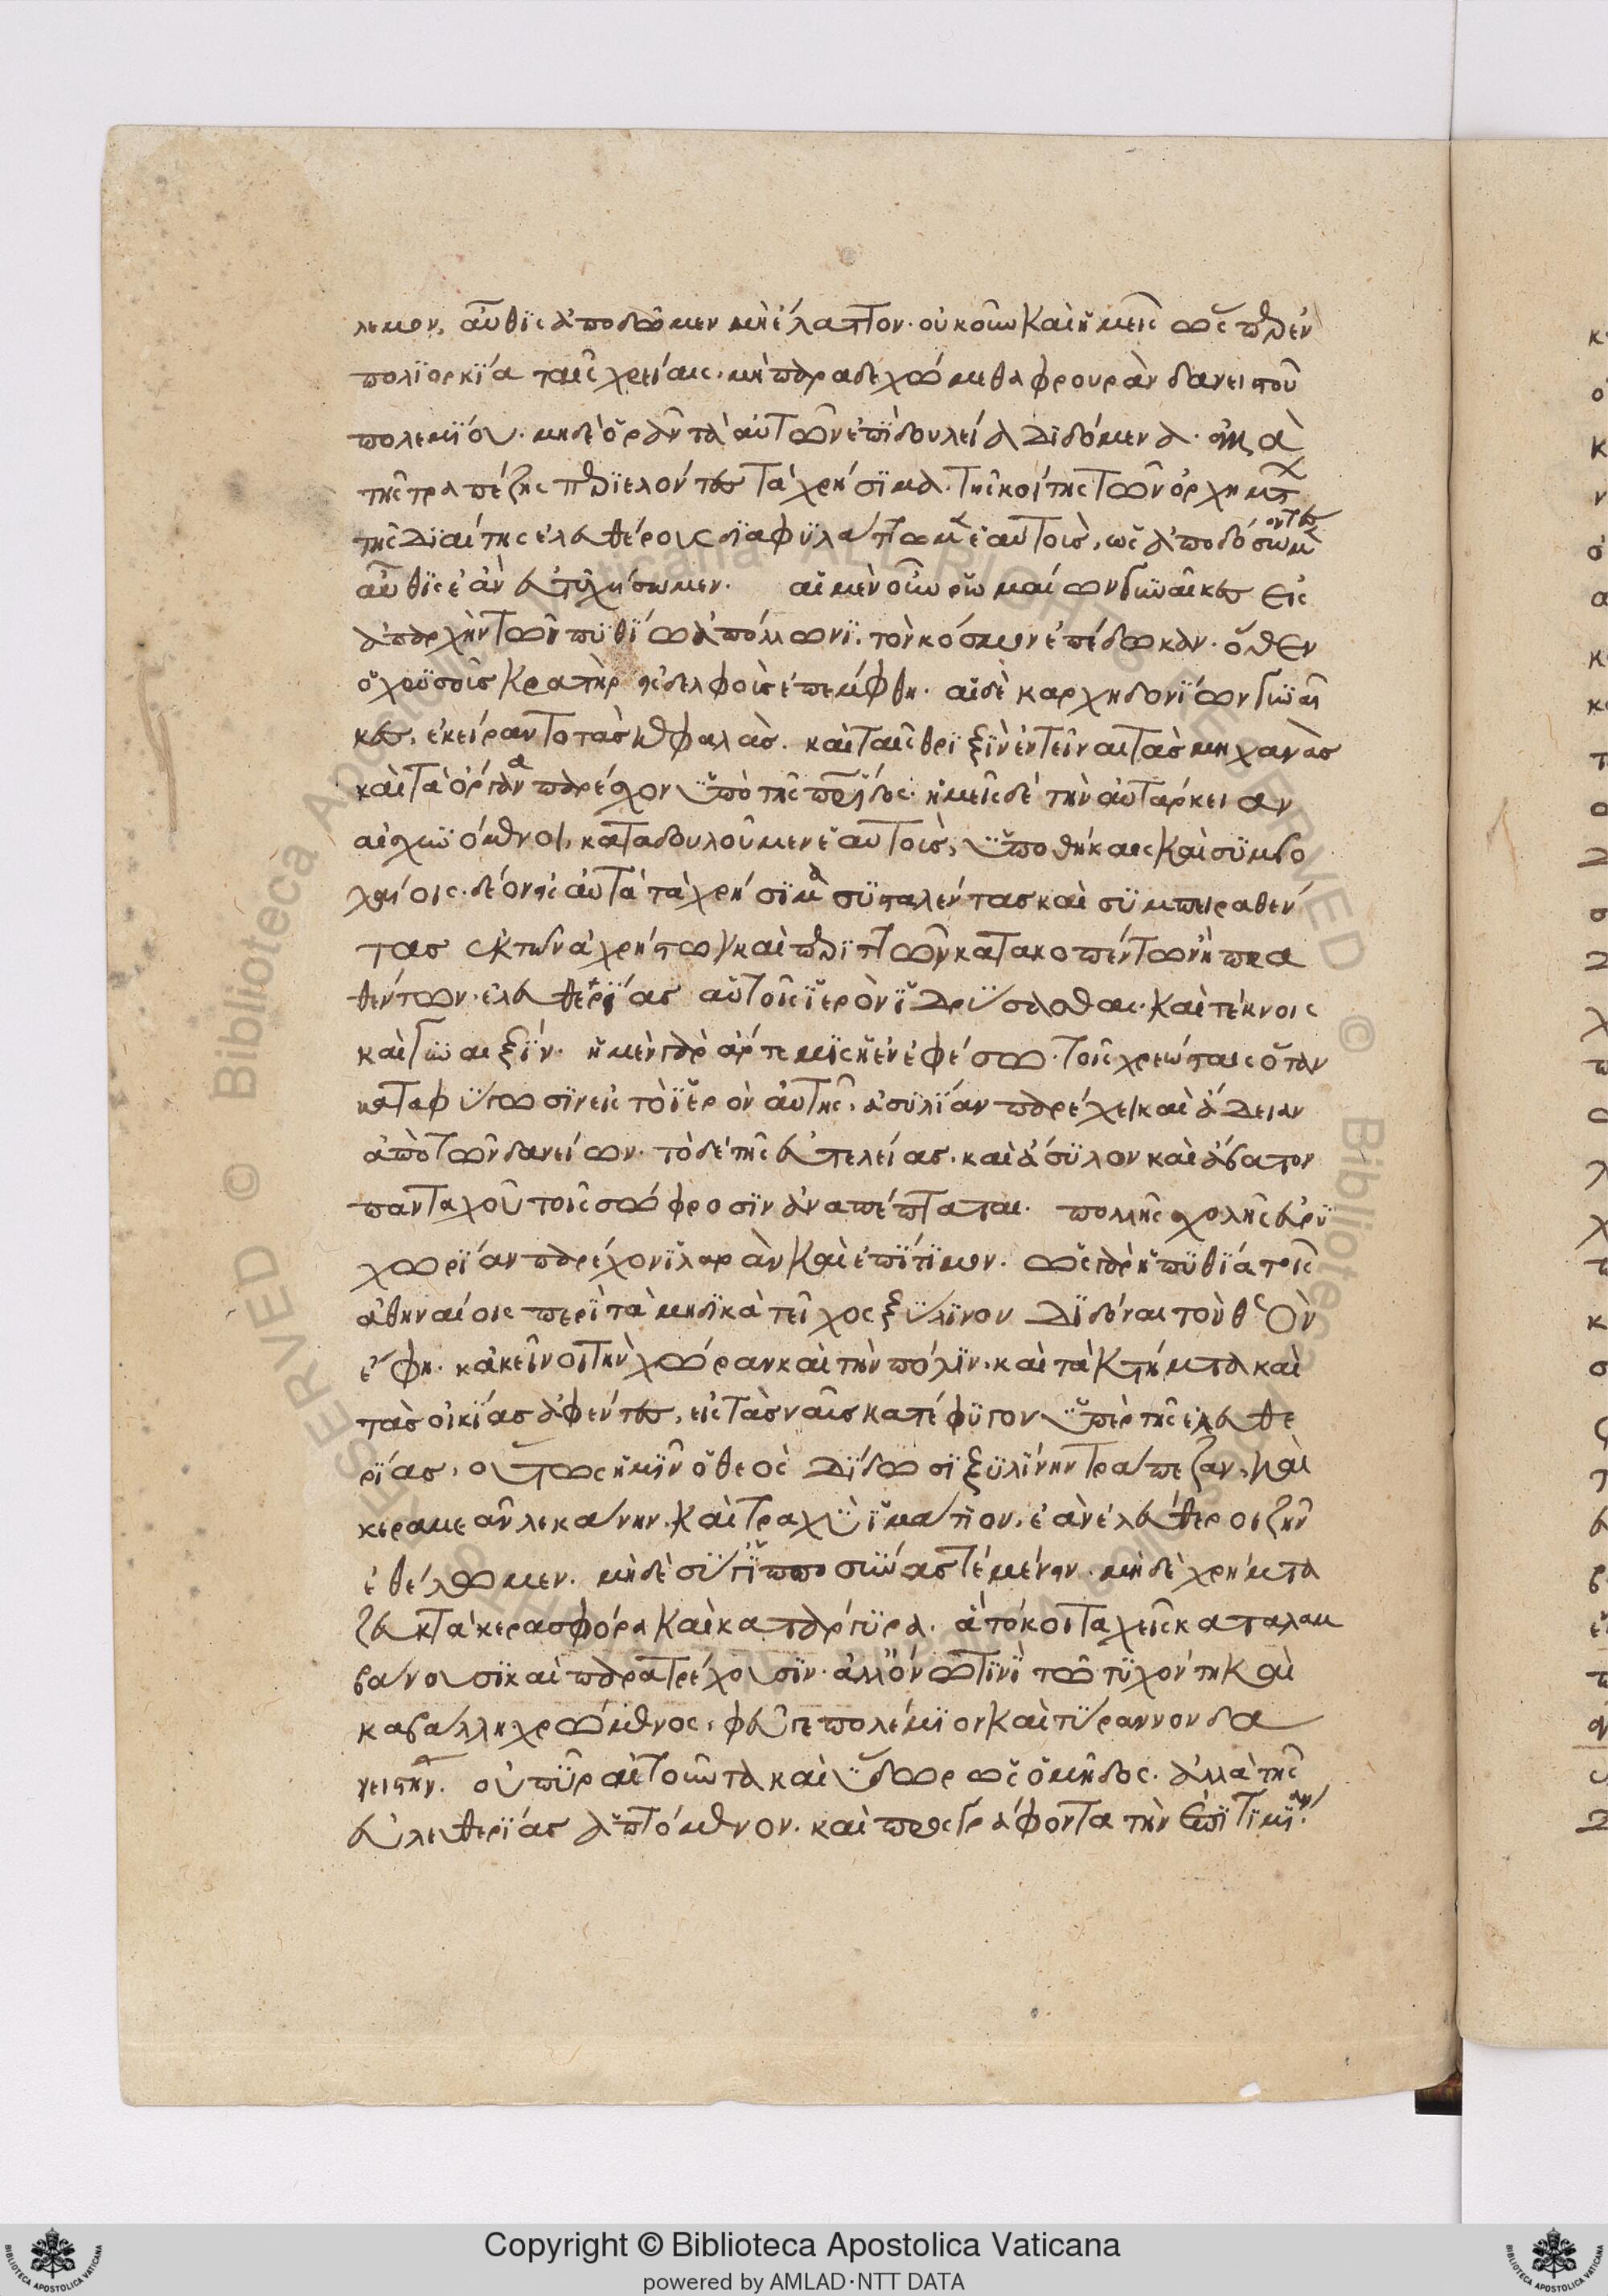 λεμον, αὖθις ἀποδῶμεν μὴ ἔλαττον· οὐκοῦν καὶ ἡμεῖς ὥσπερ ἐν
πολιορκία ταῖς χρείαις. μὴ παραδεχώμεθα φρουρὰν δανειστοῦ
πολεμίου. μηδὲ ὁρᾶν τὰ αὑτῶν ἐπὶ δουλεία διδόμενα. ἀλλὰ
τῆς τραπέζης περιελόντες τὰ χρήσιμα. τῆς κοίτης τῶν ὀχημάτ
τῆς διαίτης ἐλευθέρους διαφυλάττωμεν ἑαυτοὺς, ὡς ἀποδώσοντες
αὖθις ἐὰν εὐτυχήσωμεν. αἱ μὲν οὖν ῥωμαίων γυναῖκες εἰς
ἀπαρχὴν τῶ πυθίω ἀπόλλωνι. τὸν κόσμον ἐπέδωκαν. ὅθεν
ὁ χρυσοῦς κρατὴρ εἰς δελφοὺς ἐπέμφθη. αἱ δὲ καρχηδονίων γυναῖ
κες, ἐκείραντο τὰς κεφαλὰς. καὶ ταῖς θριξὶν ἐντεῖναι τὰς μηχανὰς
καὶ τὰ ὄργανα παρέσχον ὑπὲρ τῆς πατρίδος. ἡμεῖς δὲ τὴν αὐτάρκειαν
αἰσχυνόμενοι, καταδουλοῦμεν ἑαυτοὺς, ὑποθήκαις καὶ συμβο
λαίοις. δέον εἰς αὐτὰ τὰ χρήσιμα συσταλέντας καὶ συσπειραθέν
τας ἐκ τῶν ἀχρήστων καὶ περιττῶν κατακοπέντων ἢ πρα
θέντων. ἐλευθερίας αὑτοῖς ἱερὸν ἱδρύσασθαι. καὶ τέκνοις
καὶ γυναιξίν. ἡ μὲν γὰρ ἄρτεμις ἡ ἐν ἐφέσω. τοῖς χρεώσταις ὅταν
καταφύγωσιν εἰς τὸ ἱερὸν αὐτῆς, ἀσυλίαν παρέχει καὶ ἄδειαν
ἀπὸ τῶν δανείων. τὸ δὲ τῆς εὐτελείας. καὶ ἄσυλον καὶ ἄβατον
πανταχοῦ τοῖς σώφροσιν ἀναπέπταται. πολλῆς σχολῆς εὐρυ
χωρίαν παρέχον ἱλαρὰν καὶ ἐπίτιμον. ὡς γὰρ ἡ πυθία τοῖς
ἀθηναίοις περὶ τὰ μηδικὰ τεῖχος ξύλινον διδόναι τὸν θεὸν
ἔφη. κἀκεῖνοι τὴν χώραν καὶ τὴν πόλιν. καὶ τὰ κτήματα καὶ
τὰς οἰκίας ἀφέντες, εἰς τὰς ναῦς κατέφυγον ὑπὲρ τῆς ἐλευθε
ρίας, οὕτως ἡμῖν ὁ θεὸς δίδωσι ξυλίνην τράπεζαν, καὶ
κεραμεᾶν λεκάνην. καὶ τραχὺ ἱμάτιον, ἐὰν ἐλεύθεροι ζῆν
ἐθέλωμεν. μηδὲ σύ γ' ἱπποσύνας τε μένειν. μηδὲ χρήματα
ζευκτὰ κερασφόρα καὶ κατάργυρα. ἃ τόκοι ταχεῖς καταλαμ
βάνουσι καὶ παρατρέχουσιν. ἀλλ' ὄνω τινὶ τῶ τυχόντι καὶ
καβάλλη χρώμενος, φεῦγε πολέμιον καὶ τύραννον δα
νειστήν. οὐ πῦρ αἰτοῦντα καὶ ὕδωρ ὡς ὁ μῆδος. ἀλλὰ τῆς
ἐλευθερίας ἁπτόμενον. καὶ προσγράφοντα τὴν ἐπιτιμίαν.